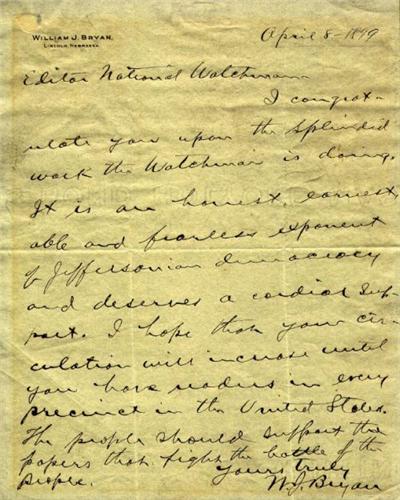 WILLIAM J. BRYAN,
LINCOLN, NEBRASKA.
April 8-1899
Editor National Watchman
I congrat-
ulate you upon the splendid
work the Watchman is doing.
It is an honest, earnest,
able and fearless exponent
of Jeffersonian democracy
and deserves a cordial sup-
port. I hope that your cir-
culation will increase until
you have readers in every
precinct in the United States.
The people should support the
papers that fight the battle of the
people.
Yours truly
W. J. Bryan